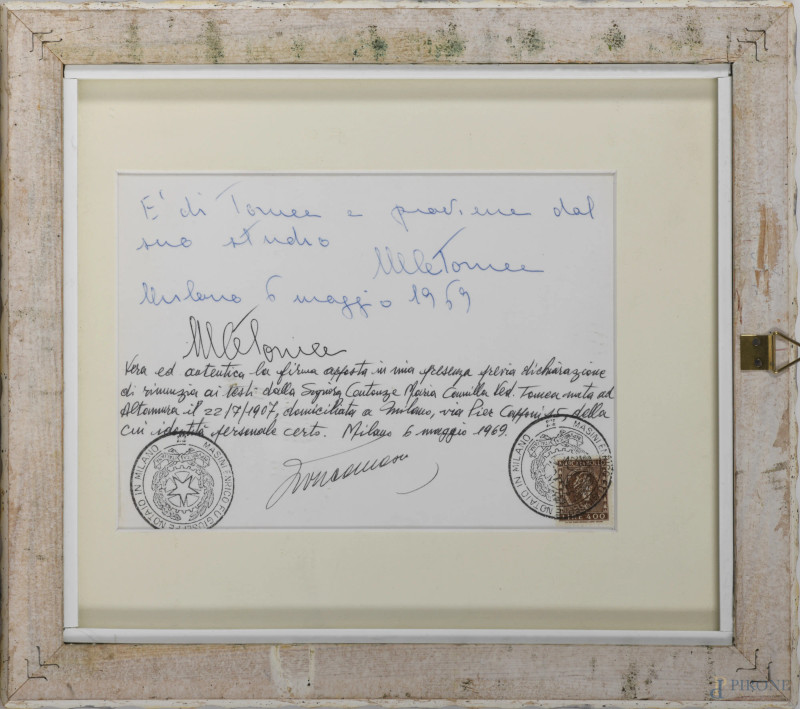 E' di Tomea e proviene dal
suo studio
MCeTomea
Milano 6 maggio 1969
MCeTomea
Vera ed autentica la firma apposta in mia presenza previa dichiarazione
di rinunzia ai testi dalla Signora Maria Camilla Ved. Tomea nata ad
Altamura il 22/7/1907, domiciliata a Milano, via Pier Capponi 15, della
cui identità personale certo. Milano 6 maggio 1969.
MASINI ENRICO FU GIUSEPPE NOTAIO IN MILANO
MASINI NOTAIO IN MILANO
LIRE 400
PIRONE